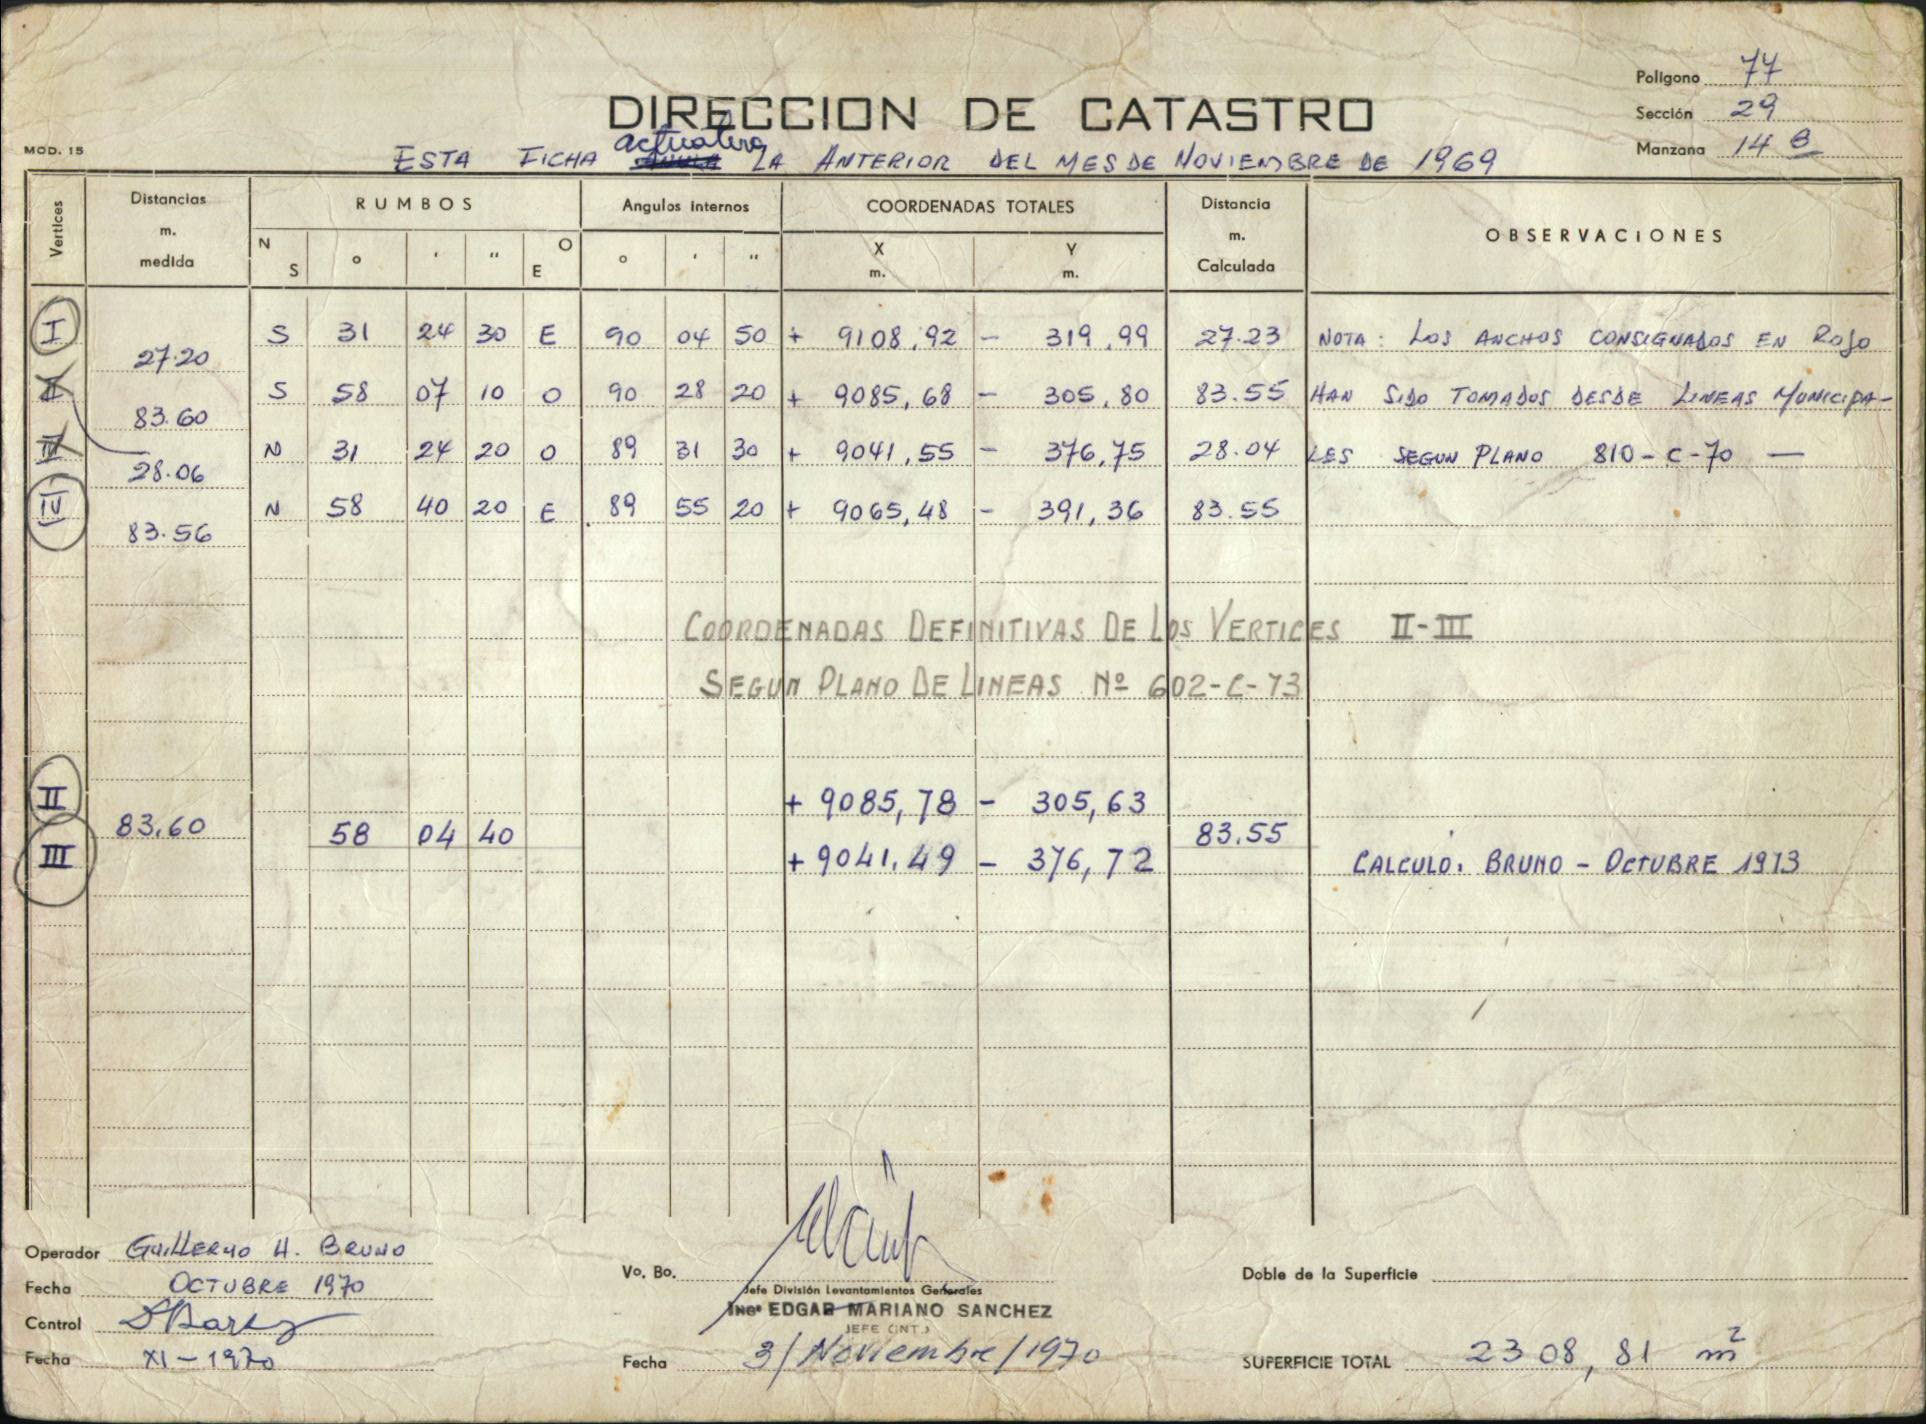 Polígono 77
DIRECCION DE CATASTRO
Sección 29
Manzana 14 B
MOD. 15
actualiza
ESTA FICHA ANULA LA ANTERIOR DEL MES DE NOVIEMBRE DE 1969
Vertices Distancias m. medida RUMBOS Angulos internos COORDENADAS TOTALES Distancia m. Calculada OBSERVACIONES
N S ° ' " O E ° ' " X m. Y m.
I S 31 24 30 E 90 04 50 + 9108,92 - 319,99 27.23 NOTA: LOS ANCHOS CONSIGNADOS EN ROJO
27.20
II S 58 07 10 O 90 28 20 + 9085,68 - 305,80 83.55 HAN SIDO TOMADOS DESDE LINEAS MUNICIPA-
83.60
III N 31 24 20 O 89 31 30 + 9041,55 - 376,75 28.04 LES SEGUN PLANO 810-C-70 —
28.06
IV N 58 40 20 E 89 55 20 + 9065,48 - 391,36 83.55
83.56
COORDENADAS DEFINITIVAS DE LOS VERTICES II-III
SEGUN PLANO DE LINEAS Nº 602-C-73
II + 9085,78 - 305,63
83,60 58 04 40 83.55
III + 9041,49 - 376,72 CALCULO: BRUNO - OCTUBRE 1973
Operador GUILLERMO H. BRUNO
Fecha OCTUBRE 1970
Control
Fecha XI-1970
Vo. Bo.
Jefe División Levantamientos Generales
Ingº EDGAR MARIANO SANCHEZ
JEFE (INT.)
Fecha 3/Noviembre/1970
Doble de la Superficie
SUPERFICIE TOTAL 2308,81 m²